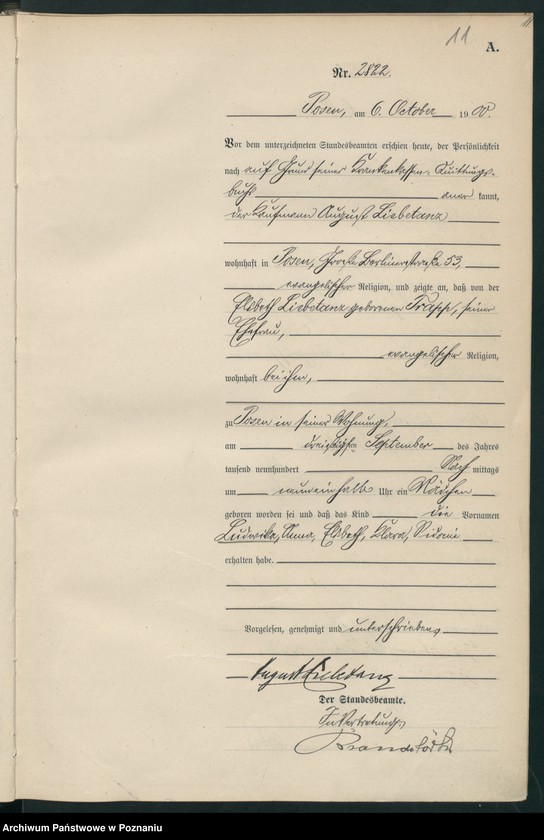 11
A.
Nr. 2822.
Posen, am 6. October 1900.
Vor dem unterzeichneten Standesbeamten erschien heute, der Persönlichkeit
nach auf Grund seines Krankenkassen-Quittungs-
buchs anerkannt,
der Kaufmann August Liebetanz
wohnhaft in Posen, Große Berlinerstraße 53,
evangelischer Religion, und zeigte an, daß von der
Elsbeth Liebetanz geborenen, seiner
Ehefrau,
evangelischer Religion,
wohnhaft bei ihm,
zu Posen in seiner Wohnung,
am dreißigsten September des Jahres
tausend neunhundert Nachmittags
um neuneinhalb Uhr ein Mädchen
geboren worden sei und daß das Kind die Vornamen
Ludwika, Anna, Elsbeth, Klara, Sidonie
erhalten habe.
Vorgelesen, genehmigt und unterschrieben
August Liebetanz
Der Standesbeamte.
In Vertretung
Archiwum Państwowe w Poznaniu